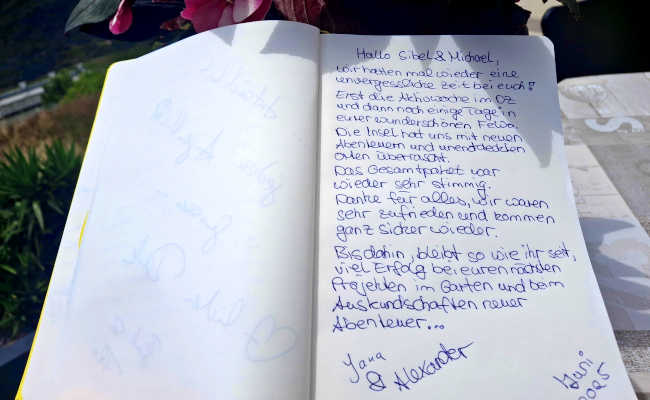 Hallo Sibel & Michael,
wir hatten mal wieder eine
unvergessliche Zeit bei euch!
Erst die Aktivwoche im OZ
und dann noch einige Tage in
eurer wunderschönen FeWo.
Die Insel hat uns mit neuen
Abenteuern und unentdeckten
Orten überrascht.
Das Gesamtpaket war
wieder sehr stimmig.
Danke für alles, wir waren
sehr zufrieden und kommen
ganz sicher wieder.
Bis dahin, bleibt so wie ihr seit,
viel Erfolg bei euren nächsten
Projekten im Garten und beim
Auskundschaften neuer
Abenteuer...
Jana
& Alexander
Juni
2025